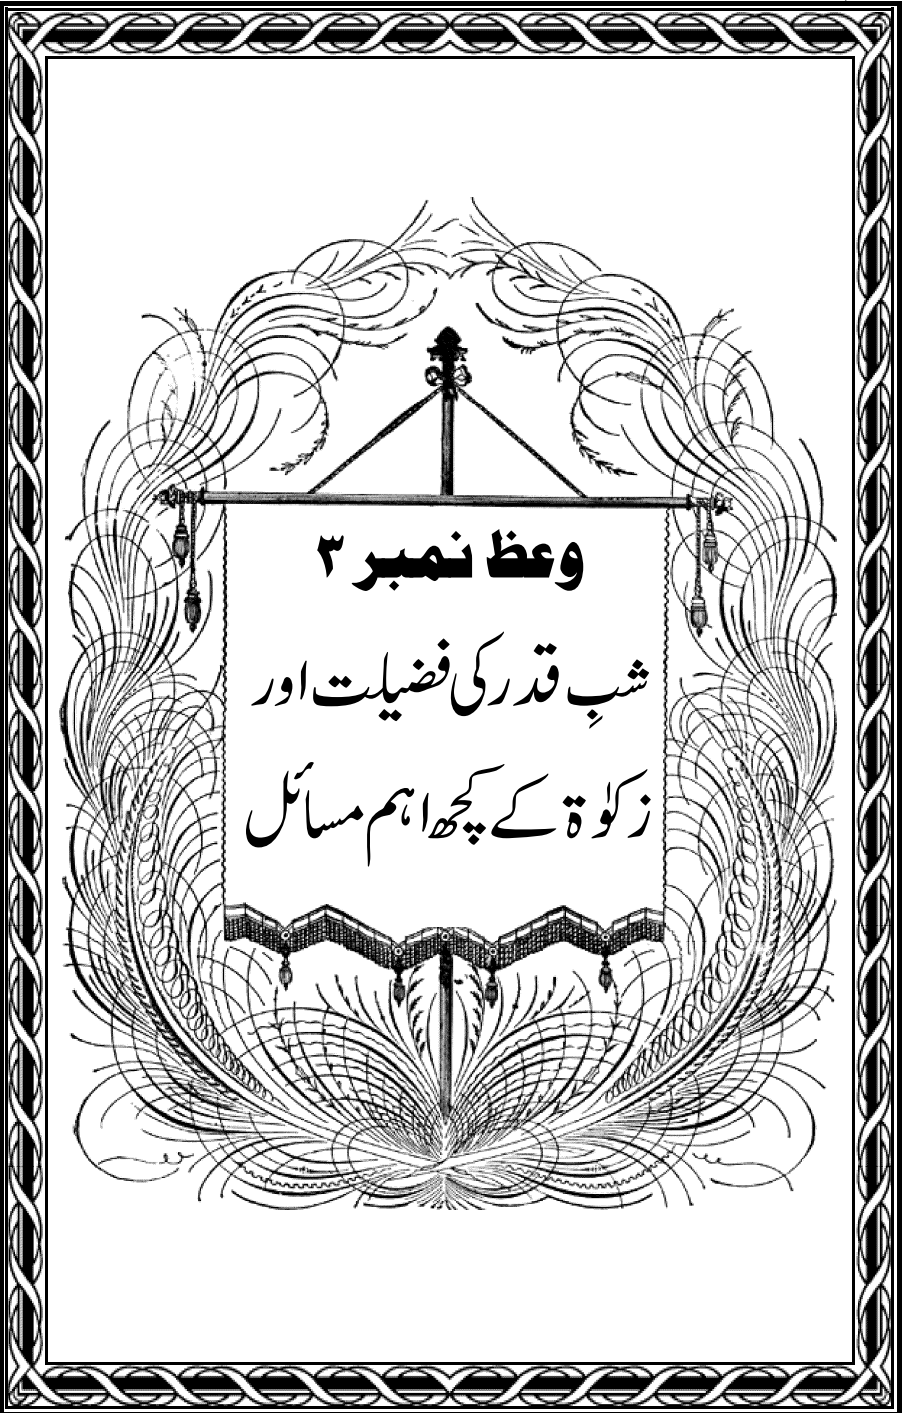 وعظ نمبر ۳
شبِ قدر کی فضیلت اور
زکوٰۃ کے کچھ اہم مسائل